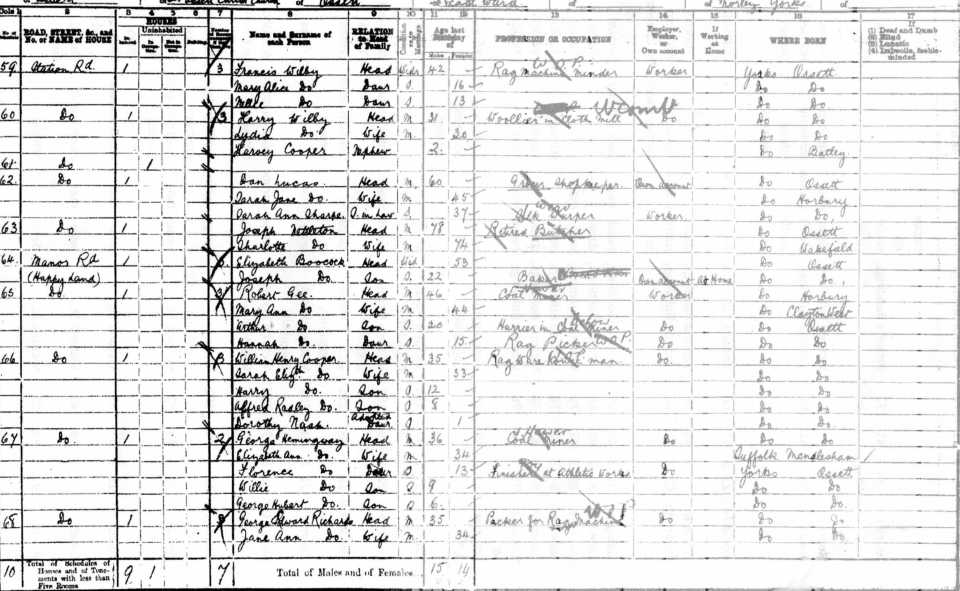 Ossett
North Ward
Morley Yorks
Cols 1 2 3 4 5 6 7 8 9 10 11 12 13 14 15 16 17
HOUSES
Uninhabited
ROAD, STREET, &c., and No. or NAME of HOUSE
Name and Surname of each Person
RELATION to Head of Family
Age last Birthday of
PROFESSION OR OCCUPATION
Employer, Worker, or Own account
If Working at Home
WHERE BORN
(1) Deaf and Dumb
(2) Blind
(3) Lunatic
(4) Imbecile, feeble-minded
59 Station Rd. 1 3 Francis Wilby Head Widr 42 Rag Machine Minder Worker Yorks Ossett
Mary Alice Do Daur S. 16 Do Do
Do Daur S. 13 Do Do
60 Do 1 3 Harry Wilby Head M 21 in Cloth Mill Do Do Do
Lydia Do Wife M 20 Do Do
Harvey Cooper Nephew 2 Do Batley
61 Do 1
62 Do 1 Dan Lucas Head M 60 Grocer Shopkeeper Own account Do Ossett
Sarah Jane Do. Wife M 45 Do Horbury
Sarah Ann Sharpe S. in law S. 37 Worker. Do Do,
63 Do 1 Joseph Nettleton Head M 78 Retired Butcher Do Ossett
Charlotte Do Wife M 74 Do Wakefield
64 Manor Rd 1 Elizabeth Boocock Head Wid 53 Do Ossett
(Happy Land) Joseph Do. Son S. 22 Baker Own account At Home Do Do,
65 Do 1 3 Robert Gee. Head M 46 Coal Miner Hewer Worker Do Horbury
Mary Ann Do Wife M 44 Do Clayton West
Arthur Do Son S 20 Hurrier in Coal Mine Do Do Ossett
Hannah Do Daur S 15 Rag Picker W.P. Do Do Do
66 Do 1 3 William Henry Cooper Head M 35 Rag Ware House man Do Do Do
Sarah Elizth Do. Wife M 33 Do Do
Harry Do. Son S 12 Do Do
Alfred Radley Do. Son S 8 Do Do
Dorothy Nash. Adopted Daur S 1 Do Do
67 Do. 1 2 George Hemingway Head M 36 Coal Miner Hewer Do Do Do
Elizabeth Ann Do. Wife M 34 Suffolk Mendlesham
Florence Do Daur S 13 Finisher at Athletic Works Do Yorks Ossett
Willie Do Son S 9 Do Do
George Hubert Do. Son S 6. Do Do
68 Do 1 3 George Edward Richards Head M 35 Packer for Rag Machine Do Do Do
Jane Ann Do. Wife M 34 Do Do
10 Total of Schedules of Houses and of Tenements with less than Five Rooms 9 1 7 Total of Males and of Females 15 14